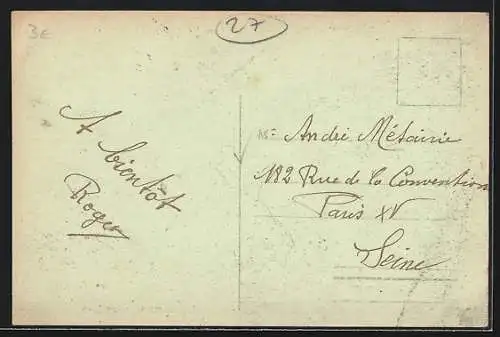 3E
27
A bientôt
Roger
Mr André Métairie
182 Rue de la Convention
Paris XV
Seine